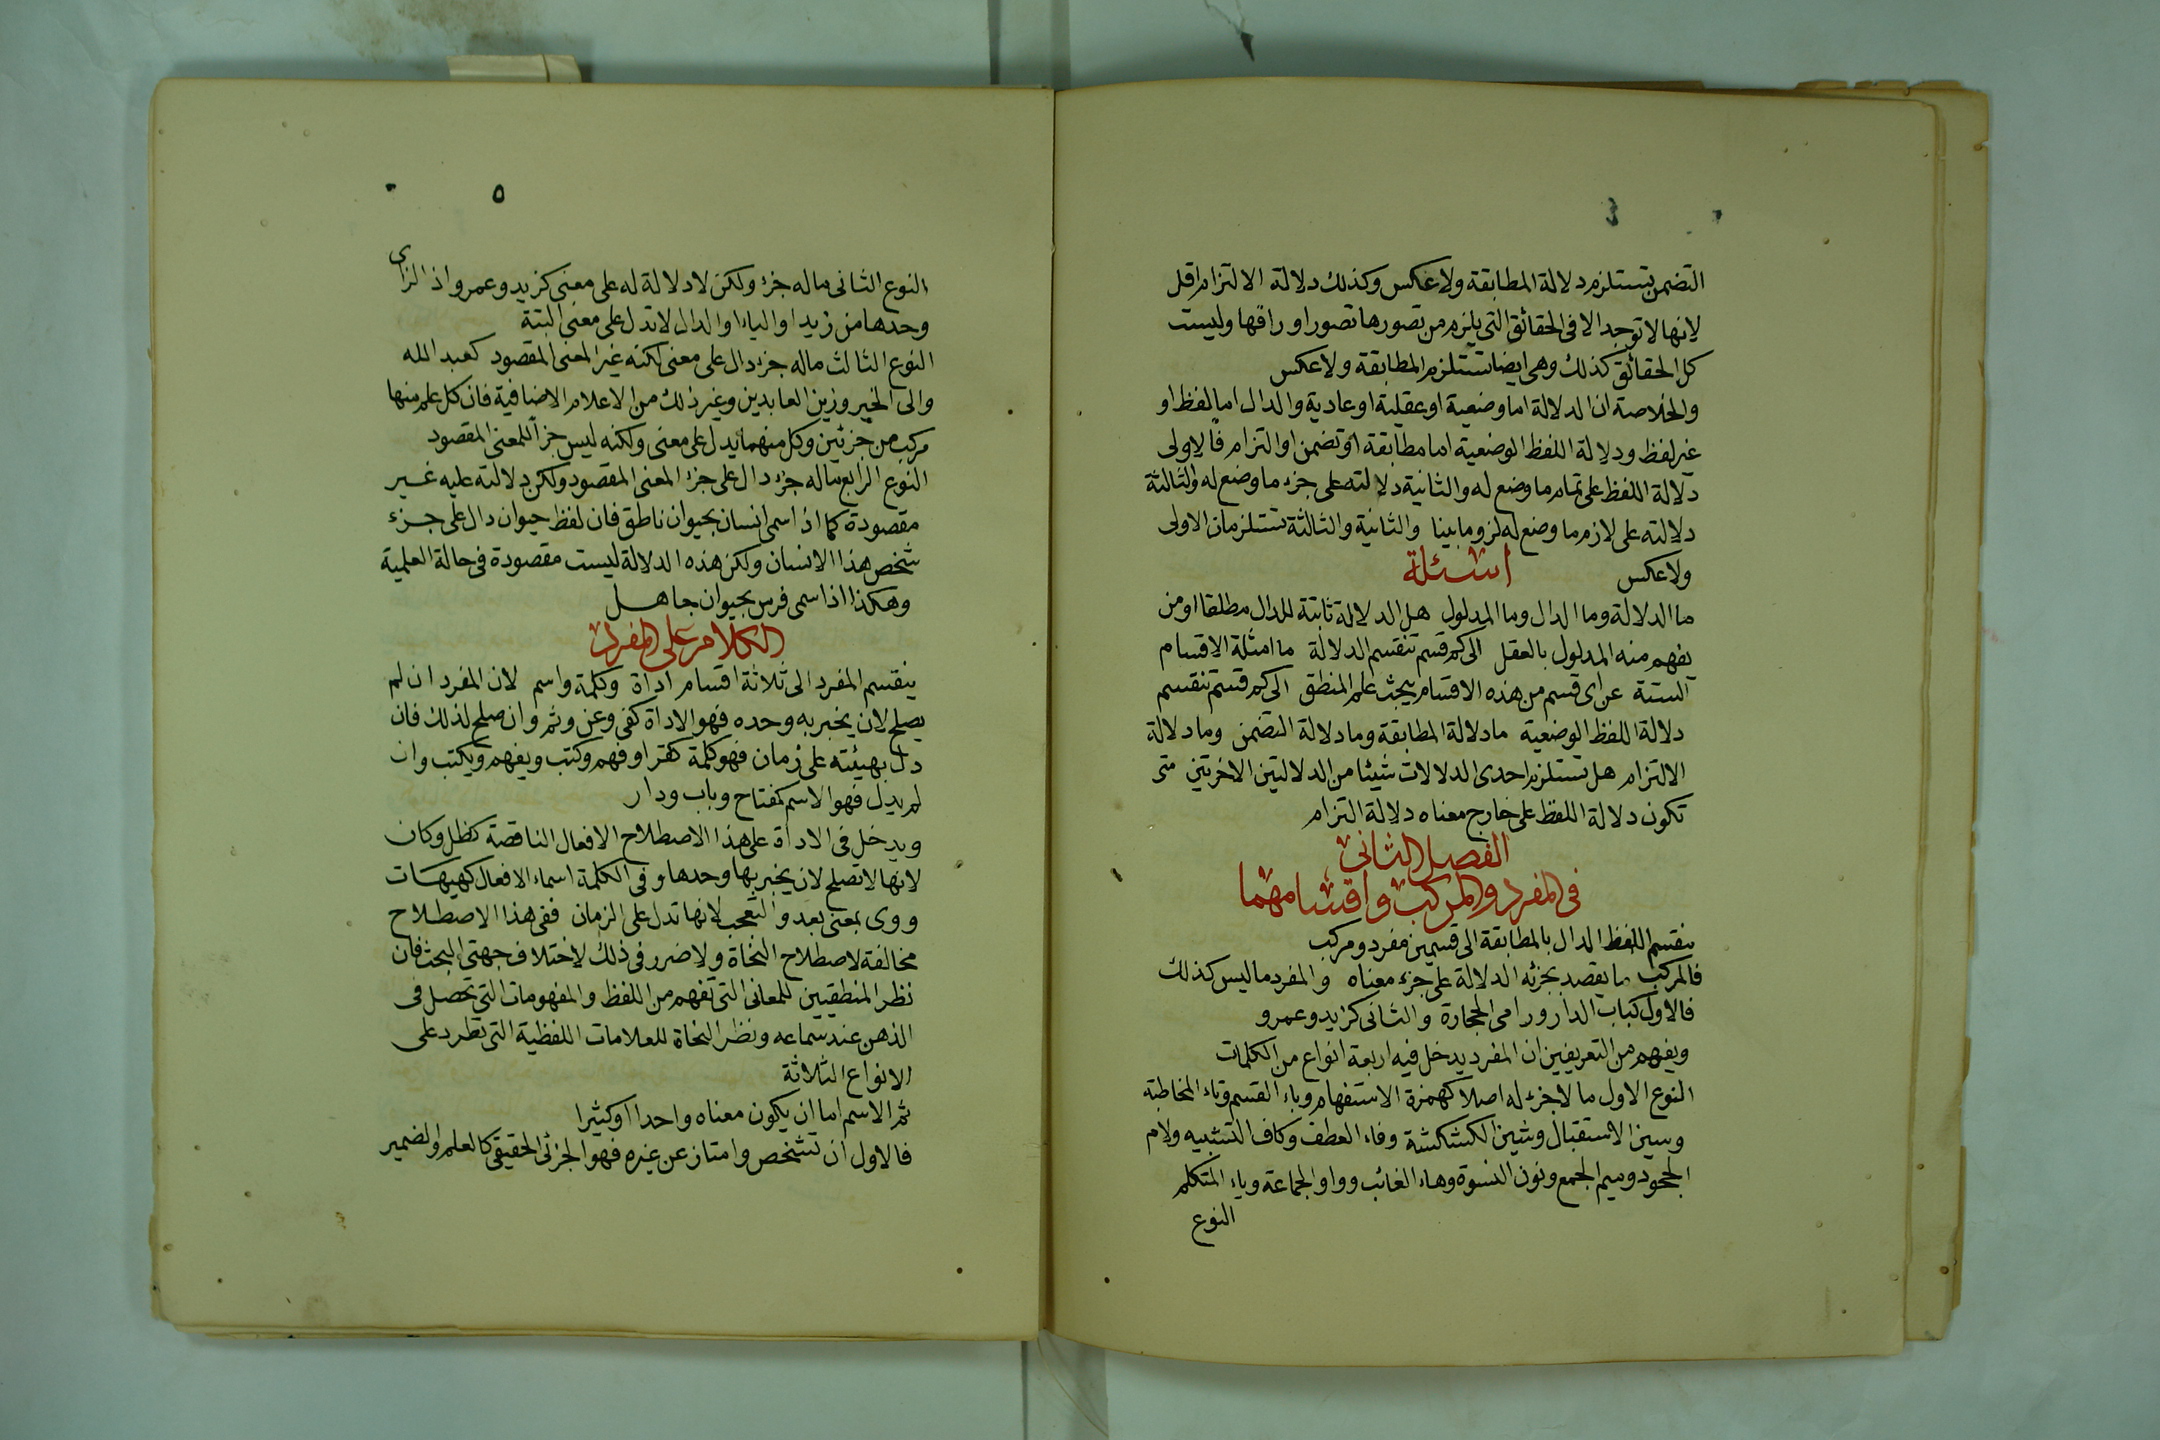 ٤
التضمن تستلزم دلالة المطابقة ولا عكس وكذلك دلالة الالتزام اقل
لانها لا توجد الا فى الحقائق التى يلزم من تصورها تصور او رافها وليست
كل الحقائق كذلك وهى ايضا تستلزم المطابقة ولا عكس
والخلاصة ان الدلالة اما وضعية او عقلية او عادية والدال اما لفظ او
غير لفظ ودلالة اللفظ الوضعية اما مطابقة او تضمن او التزام فالاولى
دلالة اللفظ على تمام ما وضع له والثانية دلالته على جزء ما وضع له والثالثة
دلالته على لازم ما وضع له لزوما بينا والثانية والثالثة تستلزمان الاولى
ولا عكس
اسئلة
ما الدلالة وما الدال وما المدلول هل الدلالة ثابتة للدال مطلقا او من
يفهم منه المدلول بالعقل الى كم قسم تنقسم الدلالة ما امثلة الاقسام
الستة عن اى قسم من هذه الاقسام يبحث علم المنطق الى كم قسم تنقسم
دلالة اللفظ الوضعية ما دلالة المطابقة وما دلالة التضمن وما دلالة
الالتزام هل تستلزم احدى الدلالات شيئا من الدلالتين الاخريتين متى
تكون دلالة اللفظ على خارج معناه دلالة التزام
الفصل الثانى
فى المفرد والمركب واقسامهما
ينقسم اللفظ الدال بالمطابقة الى قسمين مفرد ومركب
فالمركب ما يقصد بجزئه الدلالة على جزء معناه والمفرد ما ليس كذلك
فالاول كباب الدار ورامى الحجارة والثانى كزايد وعمرو
ويفهم من التعريفين ان المفرد يدخل فيه اربعة انواع من الكلمات
النوع الاول ما لا جزء له اصلا كهمزة الاستفهام وباء القسم وتاء المخاطبه
وسين الاستقبال وشين الكشكشة وفاء العطف وكاف التشبيه ولام
الجحود وميم الجمع ونون النسوة وهاء الغائب وواو الجماعة وياء المتكلم
النوع
٥
النوع الثانى ماله جزء ولكن لا دلالة له على معنى كزيد وعمرو اذ الزاى
وحدها من زيد او الياء او الدال لا تدل على معنى البتة
النوع الثالث ماله جزء دال على معنى لكنه غير المعنى المقصود كعبد الله
والى الخير وزين العابدين وغير ذلك من الاعلام الاضافية فان كل علم منها
مركب من جزئين وكل منهما يدل على معنى ولكنه ليس جزأ للمعنى المقصود
النوع الرابع ماله جزء دال على جزء المعنى المقصود ولكن دلالته عليه غير
مقصودة كما اذا سمى انسان بحيوان ناطق فان لفظ حيوان دال على جزء
شخص هذا الانسان ولكن هذه الدلالة ليست مقصودة فى حالة العلمية
وهكذا اذا سمى فرس بحيوان جاهل
الكلام على المفرد
ينقسم المفرد الى ثلاثة اقسام اداة وكلمة واسم لان المفرد ان لم
يصلح لان يخبر به وحده فهو الاداة كفى وعن وثم وان صلح لذلك فان
دل بهيئته على زمان فهو كلمة كقرا وفهم وكتب ويفهم ويكتب وان
لم يدل فهو الاسم كمفتاح وباب ودار
ويدخل فى الاداة على هذا الاصطلاح الافعال الناقصة كظل وكان
لانها لا تصلح لان يخبر بها وحدها وفى الكلمة اسماء الافعال كهيهات
ووى بمعنى بعد والتعجب لانها تدل على الزمان ففى هذا الاصطلاح
مخالفة لاصطلاح النحاة ولا ضرر فى ذلك لاختلاف جهتى البحث فان
نظر المنطقيين للمعانى التى تفهم من اللفظ والمفهومات التى تحصل فى
الذهن عند سماعه ونظر النحاة للعلامات اللفظية التى تطرد على
الانواع الثلاثة
ثم الاسم اما ان يكون معناه واحدا او كثيرا
فالاول ان تشخص وامتاز عن غيره فهو الجزئى الحقيقى كالعلم والضمير